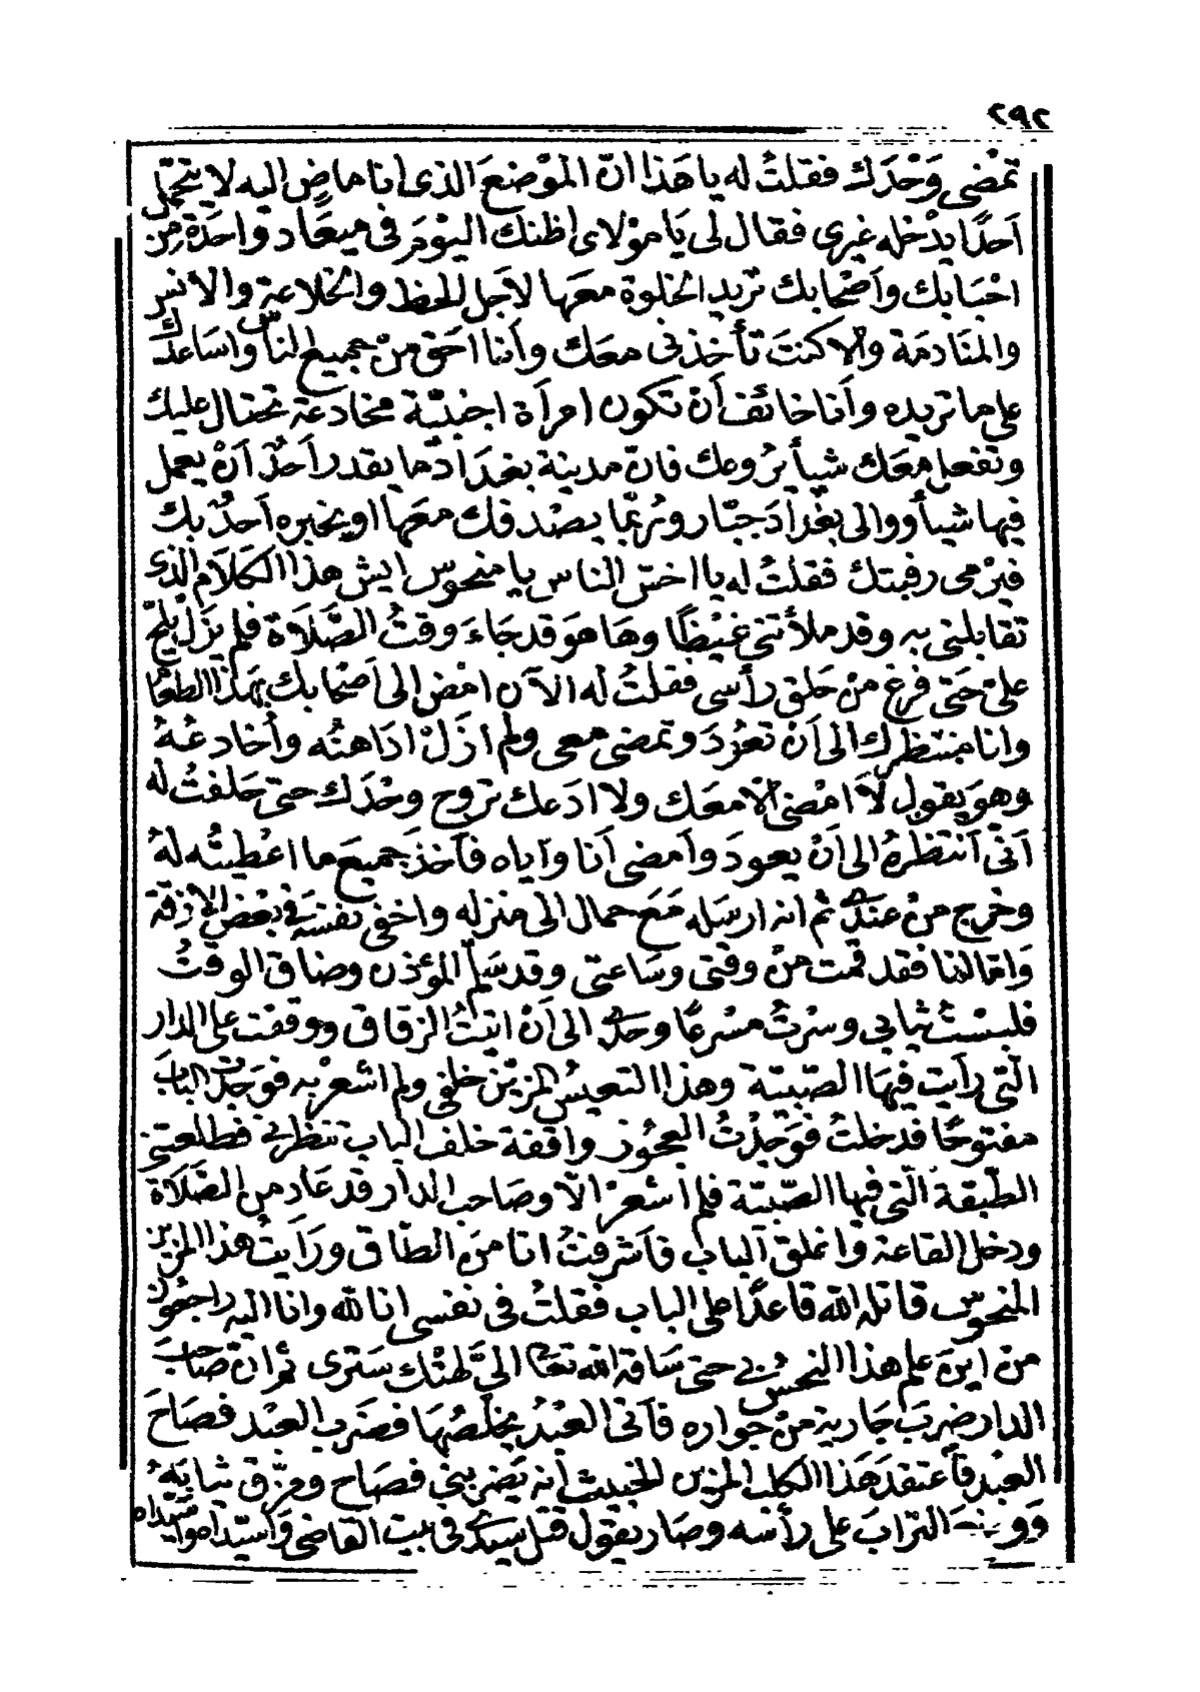 ٢٩٢
تمْضى وَحْدَك فقلتُ له يا هَذا انّ المَوْضِعَ الذى انا ماضٍ اليه لا يتحمّل
اَحدًا يدْخله غيرى فقال لى يَا مَوْلاى اظنك اليَوْمَ فى ميعَاد واحَدَة من
احْبَابك وَاَصْحابك تريد الخلوة معَها لاَجل الحظ والخلاعة والانس
والمنَادمَة والا كنتَ تأخذنى معَك وأنا احَق منْ جميع الناس واسَاعدك
على ما تريده وأنا خائف أنْ تكون امرأة اجنبيّة مخادعة تحتال عليك
وتفعل معَك شيأ يرُوعك فانّ مدينة بغدَاد ما يقدر اَحدٌ اَنْ يعمل
فيها شيأ ووالى بغدَاد جبّار ورُبّما يصْدفك معَها او يخبره اَحدٌ بك
فيرْمى رقبتك فقلتُ له يا اخسّ الناس يا منحوس ايش هذا الكلَام الذى
تقابلنى به وقد ملأتنى غيْظًا وهَا هوَ قد جَاءَ وقتُ الصَّلَاة فلم يزَلْ يلحّ
علىّ حَتى فرغ منْ حَلق رأسى فقلتُ له الآن امْض الى اَصْحابك بهذا الطعَام
وانا منتظرك الى اَنْ تعوُدَ وتمضى معى ولم ازَلْ ادَاهنُه وأخَادعُهُ
وهوَ يقول لاَ امْضى الّا معَك ولا ادَعك تروح وحْدَك حتى حَلفتُ له
اَنّى اَنتظرهُ الى اَنْ يعودَ واَمضى اَنا واَياه فآخذَ جَميعَ ما اعْطيتُه لهُ
وخرج منْ عندى ثم انه ارسَله مَعَ حمال الى منزله واخفى نفسَه فى بعْض الازقّة
وَامّا انا فقد قمت منْ وقتى وسَاعتى وقد سَلم المؤذن وضاق الوقتُ
فلبسْتُ ثيابى وسرْتُ مسْرعًا وحدى الى اَنْ اتيْتُ الزقاق ووقفت على الدار
الّتى رأيت فيهَا الصّبيّة وهذا التعيس المزيّن خلفى ولم اشعرْ به فوَجدْت البابَ
مفتوحًا فدخلتُ فوَجدْتُ العجُوز واقفة خلف الباب تنتظرنى فطلعتنى
الطّبقة الّتى فيها الصّبيّة فلم اَشعرْ الّا وصَاحب الدار قد عَاد من الصَّلَاة
ودخل القاعة واغلق اَلباب فاَشرفتُ انا من اَلطّاق ورَأيتُ هذا المزين
المنحوس قاتله الله قاعدًا على الباب فقلتُ فى نفسى انا لله وانا اليه راجعُون
من اينَ علم هذا النحْسُ بى حتى سَاقه الله تعَالى الىَّ لهتْك سَترى ثم ان صَاحبَ
الدار ضربَ جَارية منْ جواره فاَتى العبْدُ يخلّصُهَا فضرَب العبْد فصَاحَ
العبْد فأعتقدَ هَذا الكلب المزين الخبيث أنه يَضربنى فصَاح ومزّق ثيابَهُ
التّرابَ على رأسه وصار يقول قتل سيّدى فى بيت القاضى وَاسيّداه واسيّداه